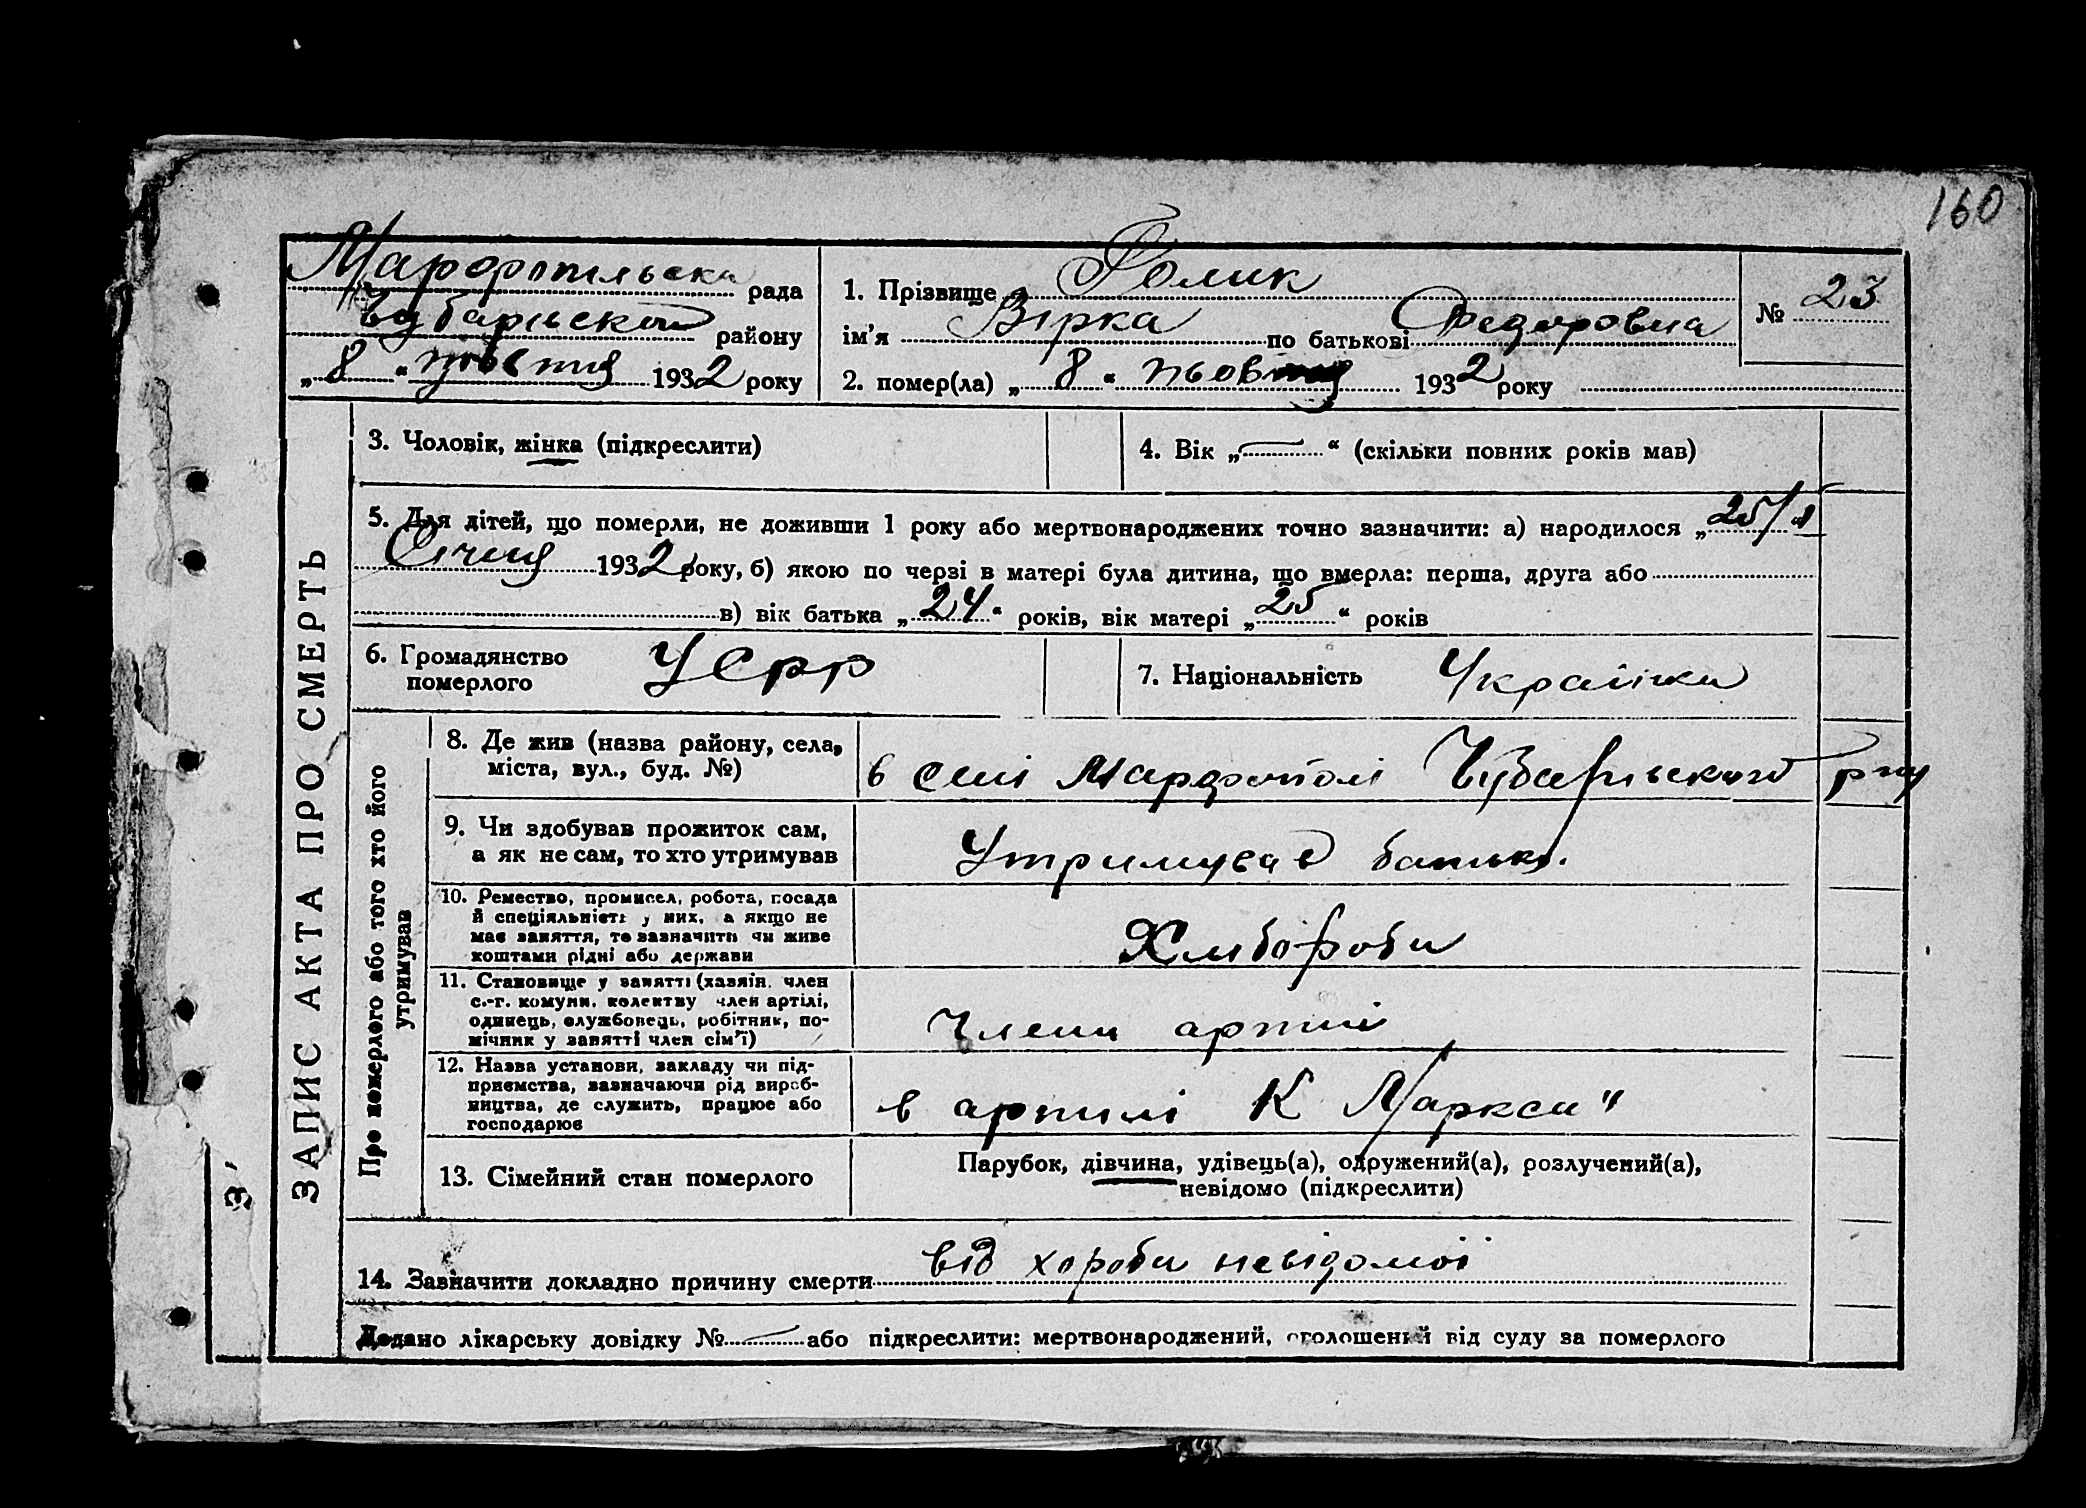 160
Марфопільська рада
Чубарівського району
„8“ жовтня 1932 року
1. Прізвище Ролик
ім’я Вірка по батькові Федоровна
2. помер(ла) „8“ жовтня 1932 року
№ 23
3. Чоловік, жінка (підкреслити)
4. Вік „—“ (скільки повних років мав)
5. Для дітей, що померли, не доживши 1 року або мертвонароджених точно зазначити: а) народилося „25/I
Січня 1932 року, б) якою по черзі в матері була дитина, що вмерла: перша, друга або
в) вік батька „24“ років, вік матері „25“ років
6. Громадянство
померлого
УСРР
7. Національність Українка
ЗАПИС АКТА ПРО СМЕРТЬ
Про померлого або того хто його
утримував
8. Де жив (назва району, села,
міста, вул., буд. №)
в селі Марфополі Чубарівського р-ну
9. Чи здобував прожиток сам,
а як не сам, то хто утримував
Утримував батько.
10. Ремество, промисел, робота, посада
й спеціяльність у них, а якщо не
має заняття, то зазначити чи живе
коштами рідні або держави
Хлібороби
11. Становище у занятті (хазяїн, член
с.-г. комуни, колективу член артілі,
одинець, службовець, робітник, по-
мічник у занятті член сім’ї)
Члени артілі
12. Назва установи, закладу чи під-
приємства, зазначаючи рід вироб-
ництва, де служить, працює або
господарює
в артилі К Маркса"
13. Сімейний стан померлого
Парубок, дівчина, удівець(а), одружений(а), розлучений(а),
невідомо (підкреслити)
14. Зазначити докладно причину смерти від хороби невідомої
Додано лікарську довідку № — або підкреслити: мертвонароджений, оголошений від суду за померлого